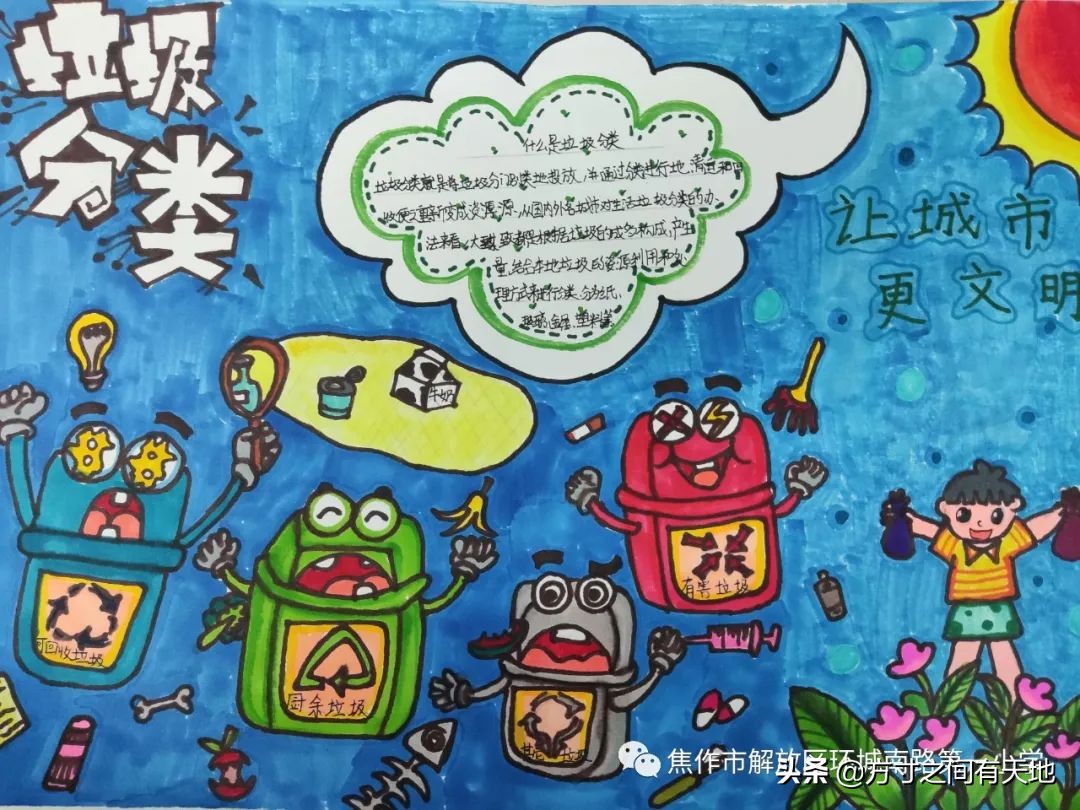 垃圾
分类
什么是垃圾分类
垃圾分类就是将垃圾分门别类地投放,并通过分类进行地清运和回
收使之重新变成资源。从国内外各城市对生活垃圾分类的办
法来看,大致都是根据垃圾的成分构成,产生
量,结合本地垃圾的资源利用和处
理方式来进行分类。分为纸、
玻璃、金属、塑料等
让城市
更文明
牛奶
可回收垃圾
厨余垃圾
有害垃圾
其他垃圾
焦作市解放区环城南路第一小学
头条 @方寸之间有天地